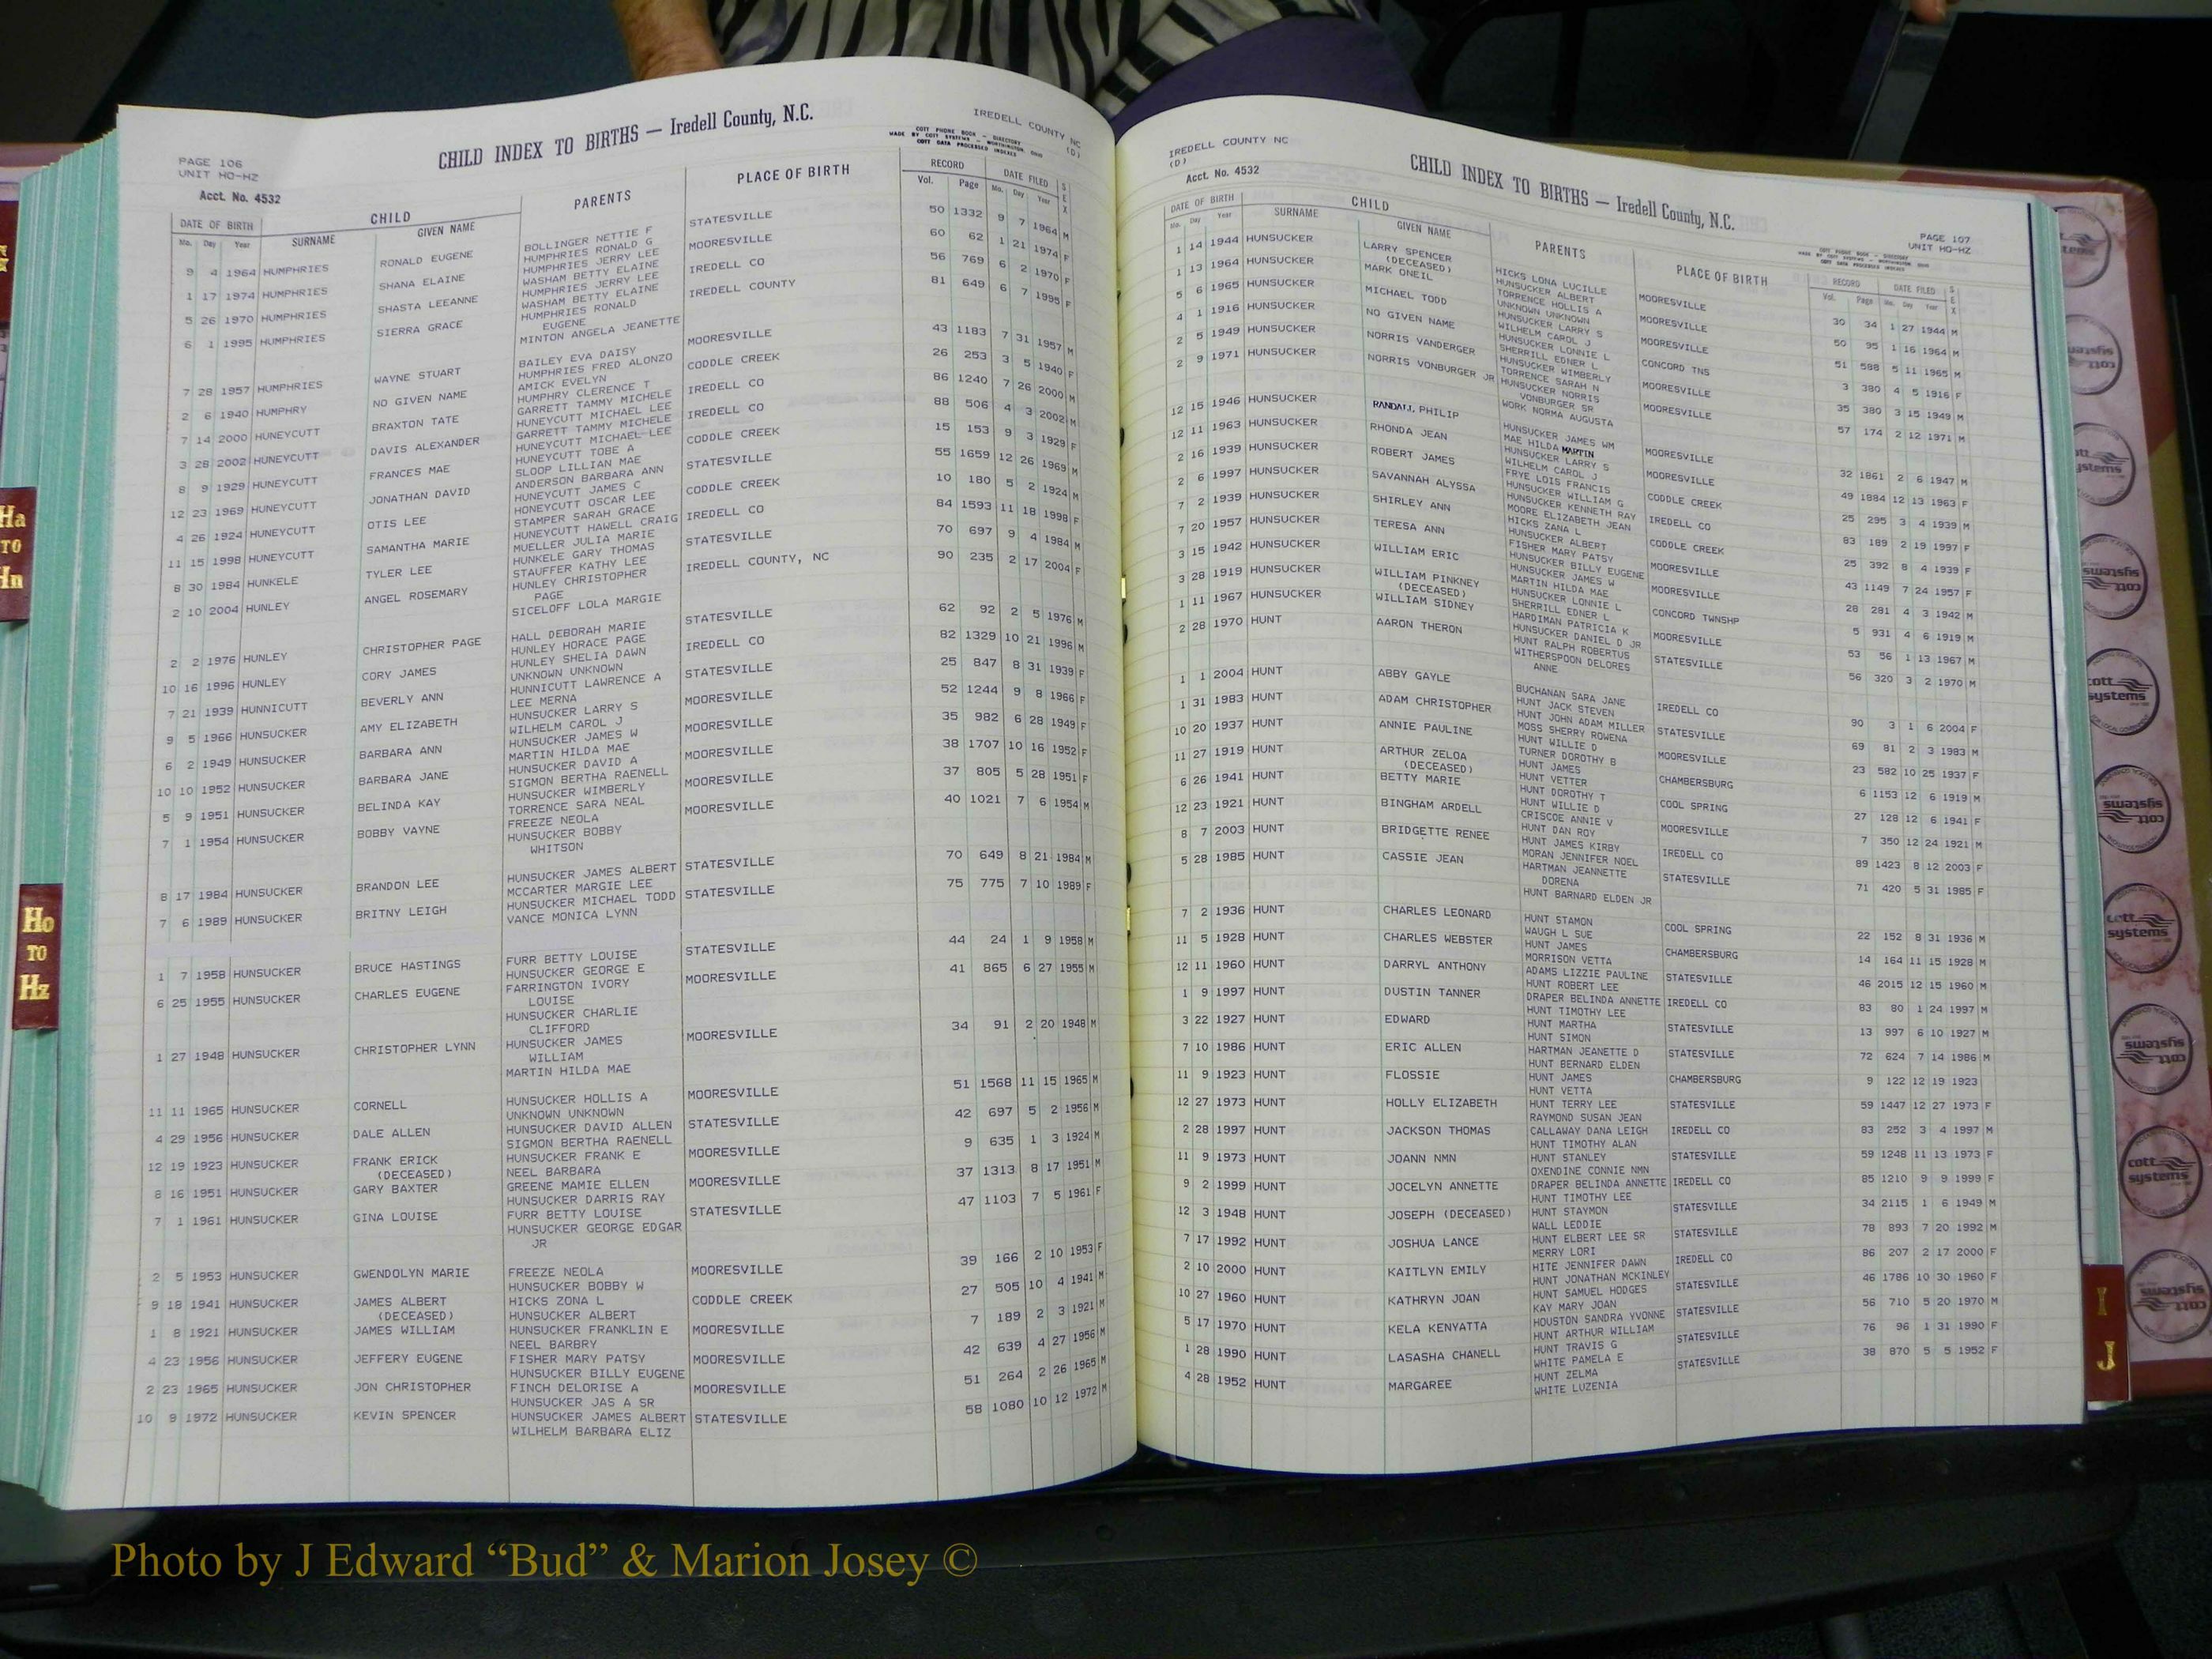 PAGE 106
UNIT HO-HZ
Acct. No. 4532
CHILD INDEX TO BIRTHS — Iredell County, N.C.
IREDELL COUNTY NC
(D)
COTT PHONE BOOK - DIRECTORY
MADE BY COTT SYSTEMS - WORTHINGTON, OHIO
COTT DATA PROCESSED INDEXES
DATE OF BIRTH CHILD PARENTS PLACE OF BIRTH RECORD DATE FILED SEX
Mo. Day Year SURNAME GIVEN NAME Vol. Page Mo. Day Year
9 4 1964 HUMPHRIES RONALD EUGENE BOLLINGER NETTIE F STATESVILLE 50 1332 9 7 1964 M
HUMPHRIES RONALD G
1 17 1974 HUMPHRIES SHANA ELAINE HUMPHRIES JERRY LEE MOORESVILLE 60 62 1 21 1974 F
WASHAM BETTY ELAINE
5 26 1970 HUMPHRIES SHASTA LEEANNE HUMPHRIES JERRY LEE IREDELL CO 56 769 6 2 1970 F
WASHAM BETTY ELAINE
6 1 1995 HUMPHRIES SIERRA GRACE HUMPHRIES RONALD IREDELL COUNTY 81 649 6 7 1995 F
EUGENE
MINTON ANGELA JEANETTE
7 28 1957 HUMPHRIES WAYNE STUART BAILEY EVA DAISY MOORESVILLE 43 1183 7 31 1957 M
HUMPHRIES FRED ALONZO
2 6 1940 HUMPHRY NO GIVEN NAME AMICK EVELYN CODDLE CREEK 26 253 3 5 1940 F
HUMPHRY CLERENCE T
7 14 2000 HUNEYCUTT BRAXTON TATE GARRETT TAMMY MICHELE IREDELL CO 86 1240 7 26 2000 M
HUNEYCUTT MICHAEL LEE
3 28 2002 HUNEYCUTT DAVIS ALEXANDER GARRETT TAMMY MICHELE IREDELL CO 88 506 4 3 2002 M
HUNEYCUTT MICHAEL LEE
8 9 1929 HUNEYCUTT FRANCES MAE HUNEYCUTT TOBE A CODDLE CREEK 15 153 9 3 1929 F
SLOOP LILLIAN MAE
12 23 1969 HUNEYCUTT JONATHAN DAVID ANDERSON BARBARA ANN STATESVILLE 55 1659 12 26 1969 M
HUNEYCUTT JAMES C
4 26 1924 HUNEYCUTT OTIS LEE HONEYCUTT OSCAR LEE CODDLE CREEK 10 180 5 2 1924 M
STAMPER SARAH GRACE
11 15 1998 HUNEYCUTT SAMANTHA MARIE HUNEYCUTT HAWELL CRAIG IREDELL CO 84 1593 11 18 1998 F
MUELLER JULIA MARIE
8 30 1984 HUNKELE TYLER LEE HUNKELE GARY THOMAS STATESVILLE 70 697 9 4 1984 M
STAUFFER KATHY LEE
2 10 2004 HUNLEY ANGEL ROSEMARY HUNLEY CHRISTOPHER IREDELL COUNTY, NC 90 235 2 17 2004 F
PAGE
SICELOFF LOLA MARGIE
2 2 1976 HUNLEY CHRISTOPHER PAGE HALL DEBORAH MARIE STATESVILLE 62 92 2 5 1976 M
HUNLEY HORACE PAGE
10 16 1996 HUNLEY CORY JAMES HUNLEY SHELIA DAWN IREDELL CO 82 1329 10 21 1996 M
UNKNOWN UNKNOWN
7 21 1939 HUNNICUTT BEVERLY ANN HUNNICUTT LAWRENCE A STATESVILLE 25 847 8 31 1939 F
LEE MERNA
9 5 1966 HUNSUCKER AMY ELIZABETH HUNSUCKER LARRY S MOORESVILLE 52 1244 9 8 1966 F
WILHELM CAROL J
6 2 1949 HUNSUCKER BARBARA ANN HUNSUCKER JAMES W MOORESVILLE 35 982 6 28 1949 F
MARTIN HILDA MAE
10 10 1952 HUNSUCKER BARBARA JANE HUNSUCKER DAVID A MOORESVILLE 38 1707 10 16 1952 F
SIGMON BERTHA RAENELL
5 9 1951 HUNSUCKER BELINDA KAY HUNSUCKER WIMBERLY MOORESVILLE 37 805 5 28 1951 F
TORRENCE SARA NEAL
7 1 1954 HUNSUCKER BOBBY VAYNE FREEZE NEOLA MOORESVILLE 40 1021 7 6 1954 M
HUNSUCKER BOBBY
WHITSON
8 17 1984 HUNSUCKER BRANDON LEE HUNSUCKER JAMES ALBERT STATESVILLE 70 649 8 21 1984 M
MCCARTER MARGIE LEE
7 6 1989 HUNSUCKER BRITNY LEIGH HUNSUCKER MICHAEL TODD STATESVILLE 75 775 7 10 1989 F
VANCE MONICA LYNN
1 7 1958 HUNSUCKER BRUCE HASTINGS FURR BETTY LOUISE STATESVILLE 44 24 1 9 1958 M
HUNSUCKER GEORGE E
6 25 1955 HUNSUCKER CHARLES EUGENE FARRINGTON IVORY MOORESVILLE 41 865 6 27 1955 M
LOUISE
HUNSUCKER CHARLIE
CLIFFORD
1 27 1948 HUNSUCKER CHRISTOPHER LYNN HUNSUCKER JAMES MOORESVILLE 34 91 2 20 1948 M
WILLIAM
MARTIN HILDA MAE
11 11 1965 HUNSUCKER CORNELL HUNSUCKER HOLLIS A MOORESVILLE 51 1568 11 15 1965 M
UNKNOWN UNKNOWN
4 29 1956 HUNSUCKER DALE ALLEN HUNSUCKER DAVID ALLEN STATESVILLE 42 697 5 2 1956 M
SIGMON BERTHA RAENELL
12 19 1923 HUNSUCKER FRANK ERICK HUNSUCKER FRANK E MOORESVILLE 9 635 1 3 1924 M
(DECEASED) NEEL BARBARA
8 16 1951 HUNSUCKER GARY BAXTER GREENE MAMIE ELLEN MOORESVILLE 37 1313 8 17 1951 M
HUNSUCKER DARRIS RAY
7 1 1961 HUNSUCKER GINA LOUISE FURR BETTY LOUISE STATESVILLE 47 1103 7 5 1961 F
HUNSUCKER GEORGE EDGAR
JR
2 5 1953 HUNSUCKER GWENDOLYN MARIE FREEZE NEOLA MOORESVILLE 39 166 2 10 1953 F
HUNSUCKER BOBBY W
9 18 1941 HUNSUCKER JAMES ALBERT HICKS ZONA L CODDLE CREEK 27 505 10 4 1941 M
(DECEASED) HUNSUCKER ALBERT
1 8 1921 HUNSUCKER JAMES WILLIAM HUNSUCKER FRANKLIN E MOORESVILLE 7 189 2 3 1921 M
NEEL BARBRY
4 23 1956 HUNSUCKER JEFFERY EUGENE FISHER MARY PATSY MOORESVILLE 42 639 4 27 1956 M
HUNSUCKER BILLY EUGENE
2 23 1965 HUNSUCKER JON CHRISTOPHER FINCH DELORISE A MOORESVILLE 51 264 2 26 1965 M
HUNSUCKER JAS A SR
10 9 1972 HUNSUCKER KEVIN SPENCER HUNSUCKER JAMES ALBERT STATESVILLE 58 1080 10 12 1972 M
WILHELM BARBARA ELIZ
IREDELL COUNTY NC
(D)
Acct. No. 4532
CHILD INDEX TO BIRTHS — Iredell County, N.C.
PAGE 107
UNIT HO-HZ
COTT PHONE BOOK - DIRECTORY
MADE BY COTT SYSTEMS - WORTHINGTON, OHIO
COTT DATA PROCESSED INDEXES
DATE OF BIRTH CHILD PARENTS PLACE OF BIRTH RECORD DATE FILED SEX
Mo. Day Year SURNAME GIVEN NAME Vol. Page Mo. Day Year
1 14 1944 HUNSUCKER LARRY SPENCER HICKS LONA LUCILLE MOORESVILLE 30 34 1 27 1944 M
(DECEASED) HUNSUCKER ALBERT
1 13 1964 HUNSUCKER MARK ONEIL TORRENCE HOLLIS A MOORESVILLE 50 95 1 16 1964 M
UNKNOWN UNKNOWN
5 6 1965 HUNSUCKER MICHAEL TODD HUNSUCKER LARRY S MOORESVILLE 51 588 5 11 1965 M
WILHELM CAROL J
4 1 1916 HUNSUCKER NO GIVEN NAME HUNSUCKER LONNIE L CONCORD TNS 3 380 4 5 1916 F
SHERRILL EDNER L
2 5 1949 HUNSUCKER NORRIS VANDERGER HUNSUCKER WIMBERLY MOORESVILLE 35 380 3 15 1949 M
TORRENCE SARAH N
2 9 1971 HUNSUCKER NORRIS VONBURGER JR HUNSUCKER NORRIS MOORESVILLE 57 174 2 12 1971 M
VONBURGER SR
WORK NORMA AUGUSTA
12 15 1946 HUNSUCKER RANDALL PHILIP HUNSUCKER JAMES WM MOORESVILLE 32 1861 2 6 1947 M
MAE HILDA MARTIN
12 11 1963 HUNSUCKER RHONDA JEAN HUNSUCKER LARRY S MOORESVILLE 49 1884 12 13 1963 F
WILHELM CAROL J
2 16 1939 HUNSUCKER ROBERT JAMES FRYE LOIS FRANCIS CODDLE CREEK 25 295 3 4 1939 M
HUNSUCKER WILLIAM G
2 6 1997 HUNSUCKER SAVANNAH ALYSSA HUNSUCKER KENNETH RAY IREDELL CO 83 189 2 19 1997 F
MOORE ELIZABETH JEAN
7 2 1939 HUNSUCKER SHIRLEY ANN HICKS ZANA L CODDLE CREEK 25 392 8 4 1939 F
HUNSUCKER ALBERT
7 20 1957 HUNSUCKER TERESA ANN FISHER MARY PATSY MOORESVILLE 43 1149 7 24 1957 F
HUNSUCKER BILLY EUGENE
3 15 1942 HUNSUCKER WILLIAM ERIC HUNSUCKER JAMES W MOORESVILLE 28 281 4 3 1942 M
MARTIN HILDA MAE
3 28 1919 HUNSUCKER WILLIAM PINKNEY HUNSUCKER LONNIE L CONCORD TWNSHP 5 931 4 6 1919 M
(DECEASED) SHERRILL EDNER L
1 11 1967 HUNSUCKER WILLIAM SIDNEY HARDIMAN PATRICIA K MOORESVILLE 53 56 1 13 1967 M
HUNSUCKER DANIEL D JR
2 28 1970 HUNT AARON THERON HUNT RALPH ROBERTUS STATESVILLE 56 320 3 2 1970 M
WITHERSPOON DELORES
ANNE
1 1 2004 HUNT ABBY GAYLE BUCHANAN SARA JANE IREDELL CO 90 3 1 6 2004 F
HUNT JACK STEVEN
1 31 1983 HUNT ADAM CHRISTOPHER HUNT JOHN ADAM MILLER STATESVILLE 69 81 2 3 1983 M
MOSS SHERRY ROWENA
10 20 1937 HUNT ANNIE PAULINE HUNT WILLIE D MOORESVILLE 23 582 10 25 1937 F
TURNER DOROTHY B
11 27 1919 HUNT ARTHUR ZELOA HUNT JAMES CHAMBERSBURG 6 1153 12 6 1919 M
(DECEASED) HUNT VETTER
6 26 1941 HUNT BETTY MARIE HUNT DOROTHY T COOL SPRING 27 128 12 6 1941 F
HUNT WILLIE D
12 23 1921 HUNT BINGHAM ARDELL CRISCOE ANNIE V MOORESVILLE 7 350 12 24 1921 M
HUNT DAN ROY
8 7 2003 HUNT BRIDGETTE RENEE HUNT JAMES KIRBY IREDELL CO 89 1423 8 12 2003 F
MORAN JENNIFER NOEL
5 28 1985 HUNT CASSIE JEAN HARTMAN JEANNETTE STATESVILLE 71 420 5 31 1985 F
DORENA
HUNT BARNARD ELDEN JR
7 2 1936 HUNT CHARLES LEONARD HUNT STAMON COOL SPRING 22 152 8 31 1936 M
WAUGH L SUE
11 5 1928 HUNT CHARLES WEBSTER HUNT JAMES CHAMBERSBURG 14 164 11 15 1928 M
MORRISON VETTA
12 11 1960 HUNT DARRYL ANTHONY ADAMS LIZZIE PAULINE STATESVILLE 46 2015 12 15 1960 M
HUNT ROBERT LEE
1 9 1997 HUNT DUSTIN TANNER DRAPER BELINDA ANNETTE IREDELL CO 83 80 1 24 1997 M
HUNT TIMOTHY LEE
3 22 1927 HUNT EDWARD HUNT MARTHA STATESVILLE 13 997 6 10 1927 M
HUNT SIMON
7 10 1986 HUNT ERIC ALLEN HARTMAN JEANETTE D STATESVILLE 72 624 7 14 1986 M
HUNT BERNARD ELDEN
11 9 1923 HUNT FLOSSIE HUNT JAMES CHAMBERSBURG 9 122 12 19 1923
HUNT VETTA
12 27 1973 HUNT HOLLY ELIZABETH HUNT TERRY LEE STATESVILLE 59 1447 12 27 1973 F
RAYMOND SUSAN JEAN
2 28 1997 HUNT JACKSON THOMAS CALLAWAY DANA LEIGH IREDELL CO 83 252 3 4 1997 M
HUNT TIMOTHY ALAN
11 9 1973 HUNT JOANN NMN HUNT STANLEY STATESVILLE 59 1248 11 13 1973 F
OXENDINE CONNIE NMN
9 2 1999 HUNT JOCELYN ANNETTE DRAPER BELINDA ANNETTE IREDELL CO 85 1210 9 9 1999 F
HUNT TIMOTHY LEE
12 3 1948 HUNT JOSEPH (DECEASED) HUNT STAYMON STATESVILLE 34 2115 1 6 1949 M
WALL LEDDIE
7 17 1992 HUNT JOSHUA LANCE HUNT ELBERT LEE SR STATESVILLE 78 893 7 20 1992 M
MERRY LORI
2 10 2000 HUNT KAITLYN EMILY HITE JENNIFER DAWN IREDELL CO 86 207 2 17 2000 F
HUNT JONATHAN MCKINLEY
10 27 1960 HUNT KATHRYN JOAN HUNT SAMUEL HODGES STATESVILLE 46 1786 10 30 1960 F
KAY MARY JOAN
5 17 1970 HUNT KELA KENYATTA HOUSTON SANDRA YVONNE STATESVILLE 56 710 5 20 1970 M
HUNT ARTHUR WILLIAM
1 28 1990 HUNT LASASHA CHANELL HUNT TRAVIS G STATESVILLE 76 96 1 31 1990 F
WHITE PAMELA E
4 28 1952 HUNT MARGAREE HUNT ZELMA STATESVILLE 38 870 5 5 1952 F
WHITE LUZENIA
Ha
TO
Hn
Ho
TO
Hz
I
J
cott
systems
Photo by J Edward “Bud” & Marion Josey ©